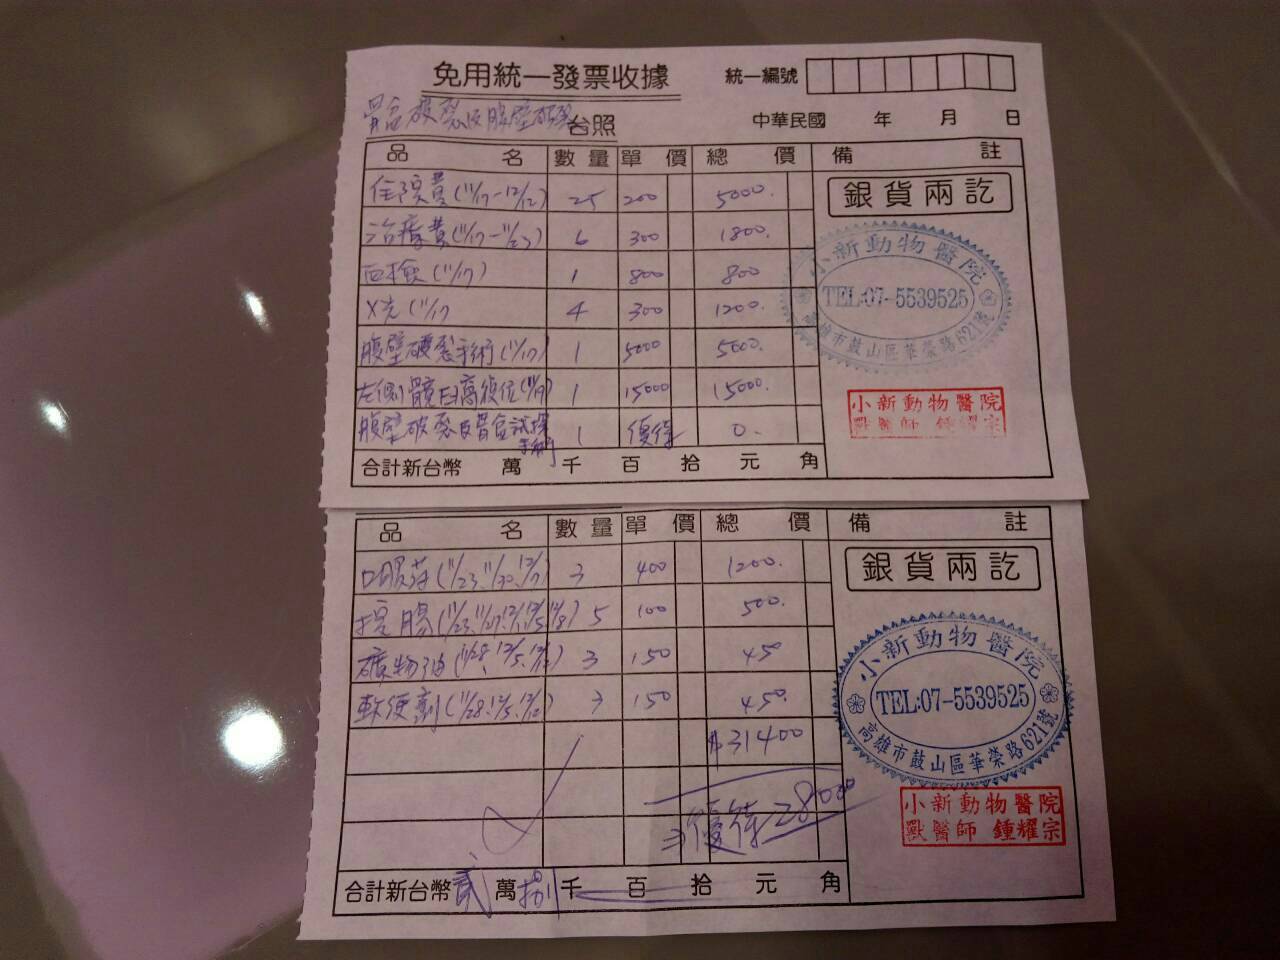 免用統一發票收據
統一編號
骨盆破裂及腹壁破裂 台照
中華民國 年 月 日
品名 數量 單價 總價 備註
住院費(11/17-12/12) 25 200 5000.
治療費(11/17-11/23) 6 300 1800.
血檢(11/17) 1 800 800
X光(11/17 4 300 1200.
腹壁破裂手術(11/17) 1 5000 5000.
左側髖臼離復位(11/19) 1 15000 15000.
腹壁破裂及骨盆試探手術 1 優待 0.
合計新台幣 萬 千 百 拾 元 角
銀貨兩訖
小新動物醫院
TEL:07-5539525
高雄市鼓山區華榮路621號
小新動物醫院
獸醫師 鍾耀宗
品名 數量 單價 總價 備註
口服葯(11/23.11/30.12/7) 3 400 1200.
浣腸(11/23.11/27.12/1.12/5.12/8) 5 100 500.
礦物油(11/28.12/5.12/12) 3 150 45
軟便劑(11/28.12/5.12/12) 3 150 450.
$31400
⇒優待28000
合計新台幣 貳 萬 捌 千 百 拾 元 角
銀貨兩訖
小新動物醫院
TEL:07-5539525
高雄市鼓山區華榮路621號
小新動物醫院
獸醫師 鍾耀宗